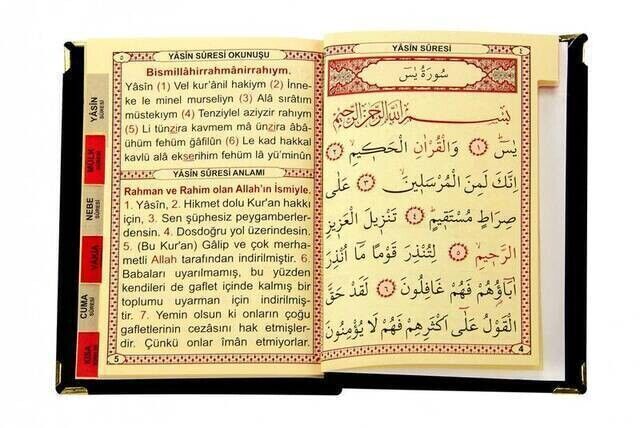 YÂSÎN SÛRESİ
MÜLK
SÛRESİ
NEBE
SÛRESİ
VAKIA
CUMA
SÛRESİ
KISA
٥
YÂSÎN SÛRESİ OKUNUŞU
Bismillâhirrahmânirrahıym.
Yâsîn (1) Vel kur'ânil hakiym (2) İnne-
ke le minel murseliyn (3) Alâ sırâtım
müstekıym (4) Tenziylel aziyzir rahıym
(5) Li tünzira kavmem mâ ünzira âbâ-
ühüm fehüm gâfilûn (6) Le kad hakkal
kavlü alâ ekserihim fehüm lâ yü'minûn
YÂSÎN SÛRESİ ANLAMI
Rahman ve Rahim olan Allah'ın İsmiyle.
1. Yâsîn, 2. Hikmet dolu Kur'an hakkı
için, 3. Sen şüphesiz peygamberler-
densin. 4. Dosdoğru yol üzerindesin.
5. (Bu Kur'an) Gâlip ve çok merha-
metli Allah tarafından indirilmiştir. 6.
Babaları uyarılmamış, bu yüzden
kendileri de gaflet içinde kalmış bir
toplumu uyarman için indirilmiş-
tir. 7. Yemin olsun ki onların çoğu
gafletlerinin cezasını hak etmişler-
dir. Çünkü onlar îmân etmiyorlar.
5
YÂSÎN SÛRESİ
٤
سُورَةُ يٰسٓ
بِسْمِ اللّٰهِ الرَّحْمٰنِ الرَّحِيمِ
يٰسٓ ﴿١﴾ وَالْقُرْاٰنِ الْحَكِيمِ ﴿٢﴾
اِنَّكَ لَمِنَ الْمُرْسَلِينَ ﴿٣﴾ عَلٰى
صِرَاطٍ مُسْتَقِيمٍ ﴿٤﴾ تَنْزِيلَ الْعَزِيزِ
الرَّحِيمِ ﴿٥﴾ لِتُنْذِرَ قَوْمًا مَا اُنْذِرَ
اٰبَاؤُهُمْ فَهُمْ غَافِلُونَ ﴿٦﴾ لَقَدْ حَقَّ
الْقَوْلُ عَلٰى اَكْثَرِهِمْ فَهُمْ لَا يُؤْمِنُونَ
4